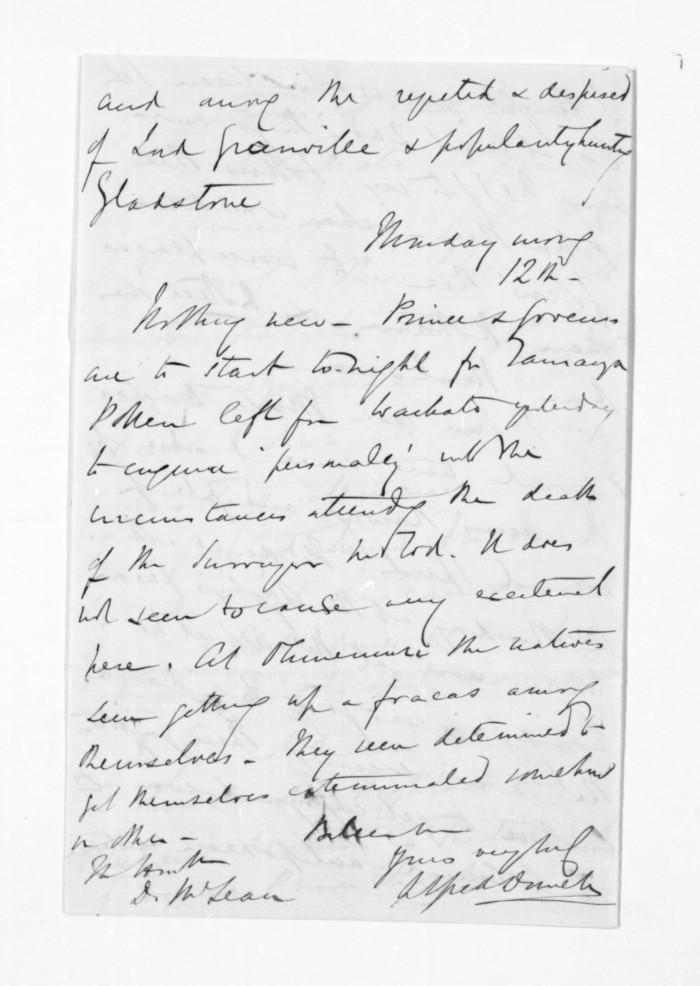 and among the rejected & despised
of Lord Granville & popularity hunting
Gladstone
Monday morng
12th -
Nothing new -. Prince & Governor
are to start to-night for Tauranga
Pollen left for Waikato yesterday
to enquire 'personally' into the
circumstances attendg the death
of the Surveyor Todd. It does
not seem to cause any excitement
here. At Ohinemuri the natives
seem getting up a fracas among
themselves - They seem determined to
get themselves exterminated somehow
or other -
Believe me
Yours very truly
Alfred Domett
D. McLean